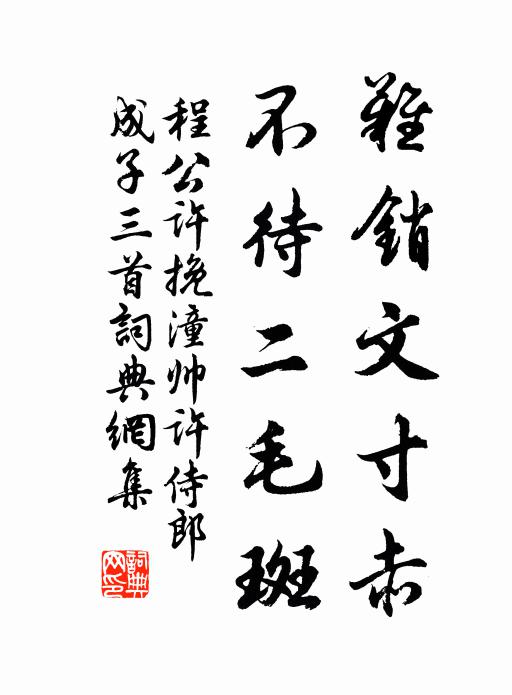 難銷文寸赤
不待二毛斑
程公許挽潼帅許侍郎
成子三首詞典網集
詞典网印